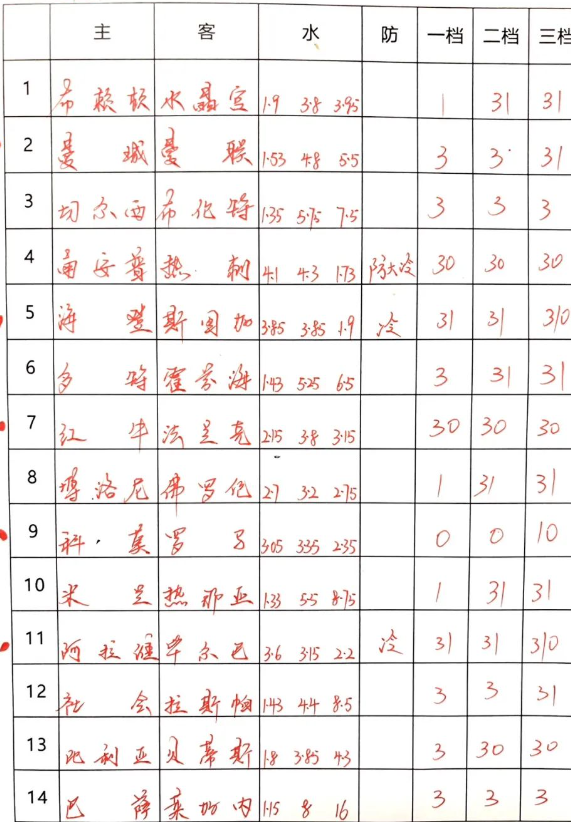 主 客 水 防 一档 二档 三档
1 布赖顿 水晶宫 1.9 3.8 3.95 1 31 31
2 曼城 曼联 1.53 4.8 5.5 3 3 31
3 切尔西 布伦特 1.35 5.75 7.5 3 3 3
4 南安普 热刺 4.1 4.3 1.73 防大冷 30 30 30
5 海登 斯图加 3.85 3.85 1.9 冷 31 31 310
6 多特 霍芬海 1.43 5.25 6.5 3 31 31
7 红牛 法兰克 2.15 3.8 3.15 30 30 30
8 博洛尼 佛罗伦 2.7 3.2 2.75 1 31 31
9 科·莫 罗马 3.05 3.35 2.35 0 0 10
10 米兰 热那亚 1.33 5.5 8.75 1 31 31
11 阿拉维 毕尔巴 3.6 3.15 2.2 冷 31 31 310
12 社会 拉斯帕 1.43 4.4 8.5 3 3 31
13 比利亚 贝蒂斯 1.8 3.85 4.3 3 30 30
14 巴萨 莱加内 1.15 8 16 3 3 3